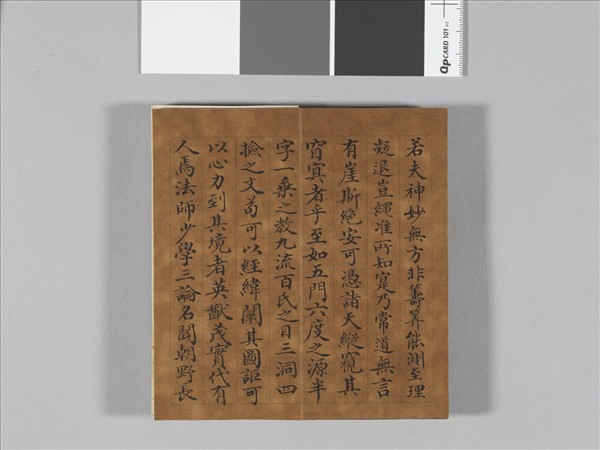 若夫神妙無方非籌筭能測至理
凝邈豈繩准所知寔乃常道無言
有崖斯絶安可憑諸天縱窺其
窅冥者乎至如五門六度之源半
字一乘之教九流百氏之目三洞四
撿之文苟可以經緯闡其圖詎可
以心力到其境者英猷茂實代有
人焉法師少學三論名聞朝野長
QPCARD 101 v2